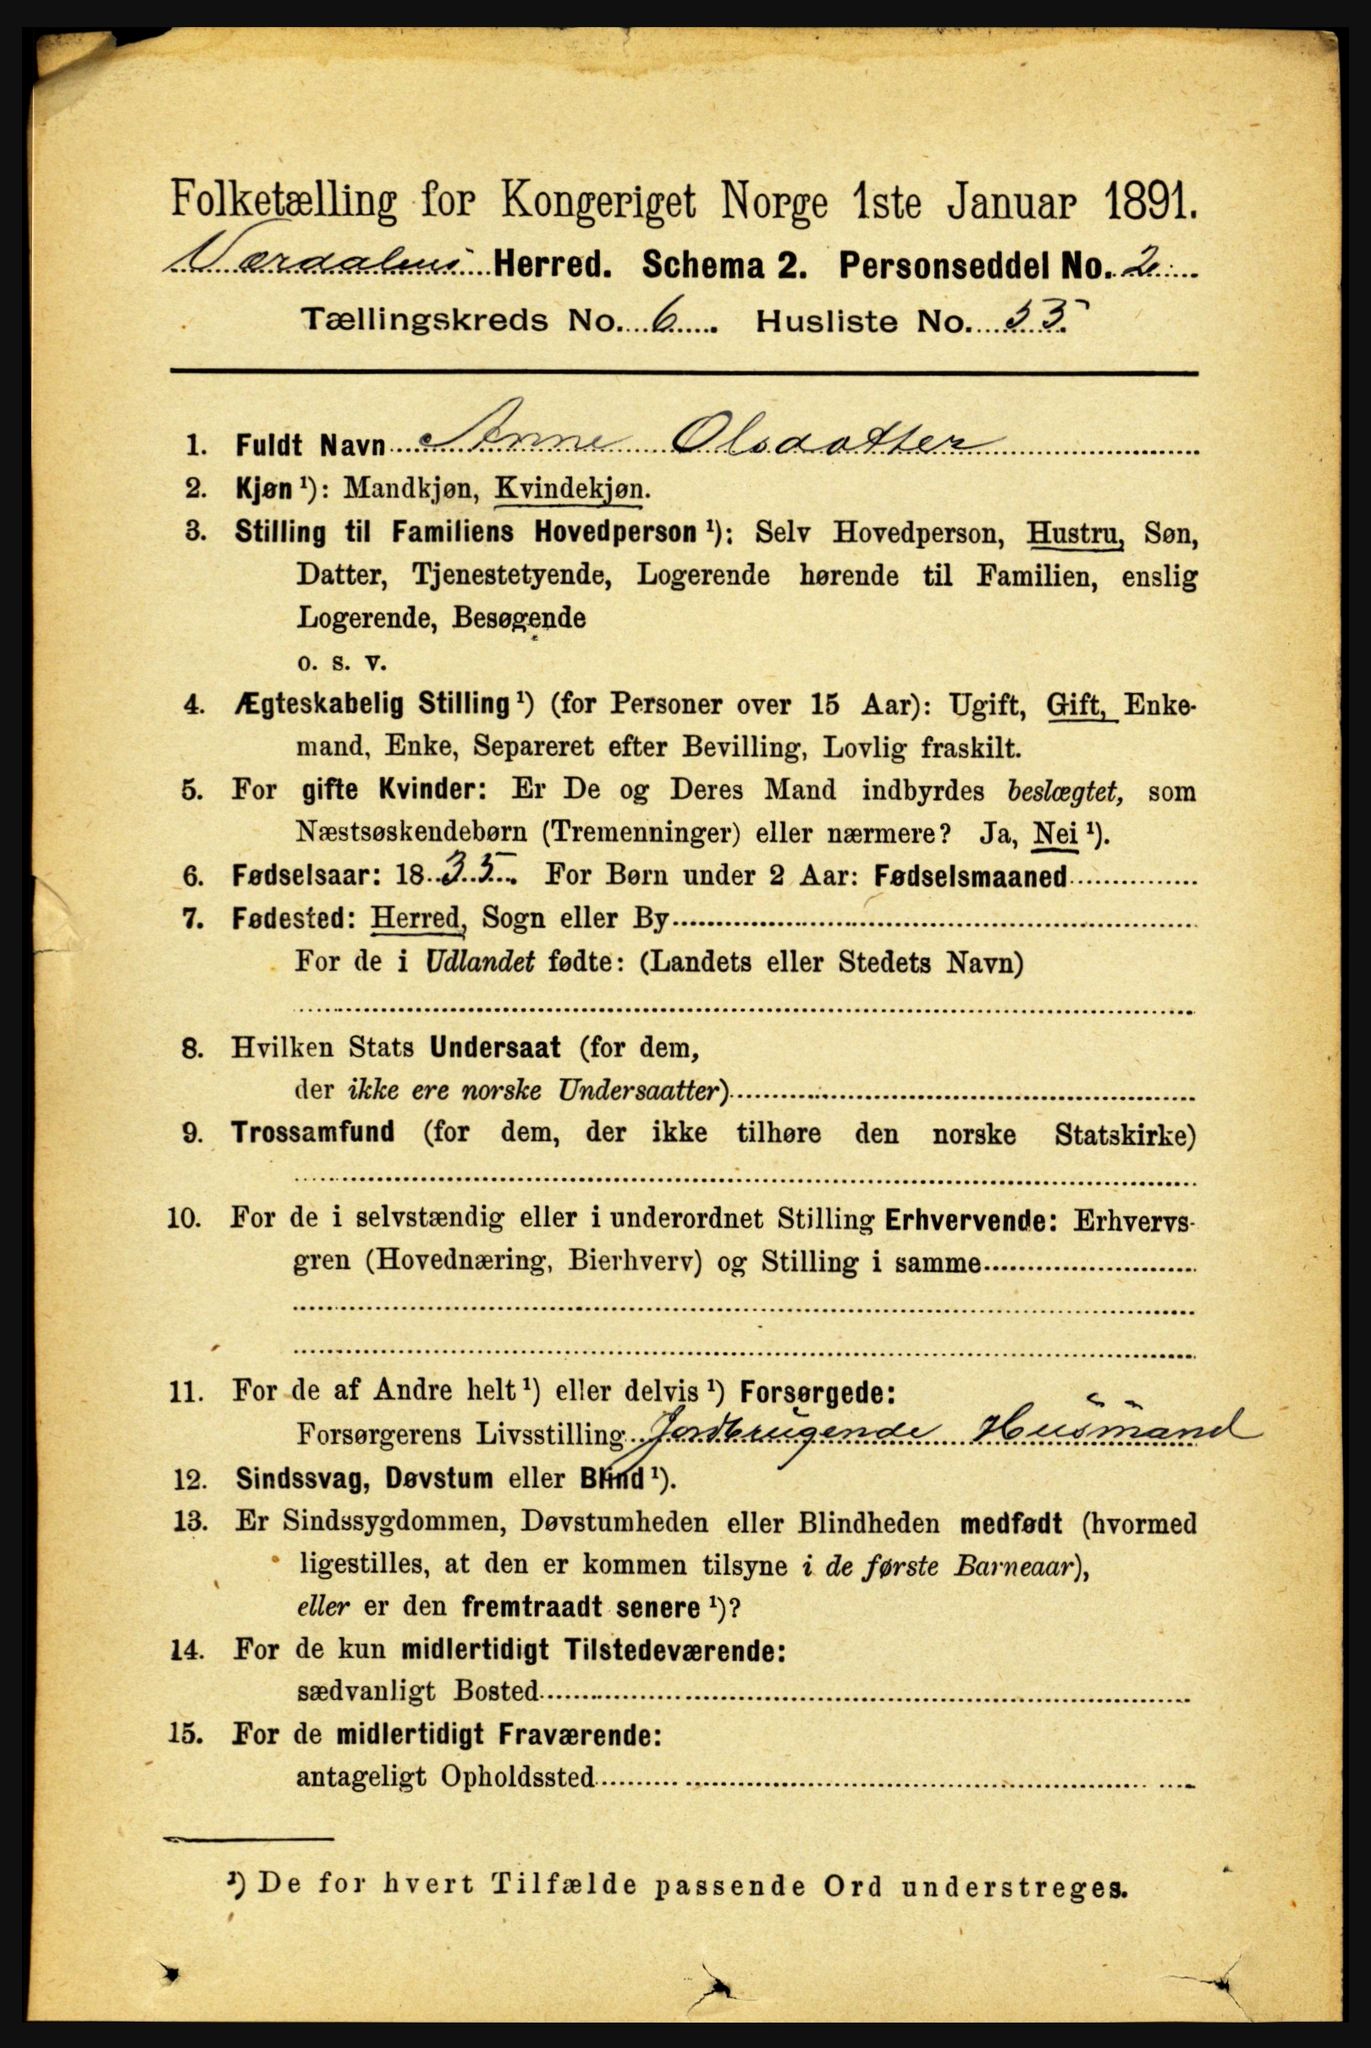 Folketælling for Kongeriget Norge 1ste Januar 1891.
Værdalens Herred. Schema 2. Personseddel No. 2
Tællingskreds No. 6 Husliste No. 53
1. Fuldt Navn Anne Olsdatter
2. Kjøn ¹): Mandkjøn, Kvindekjøn.
3. Stilling til Familiens Hovedperson ¹): Selv Hovedperson, Hustru, Søn,
Datter, Tjenestetyende, Logerende hørende til Familien, enslig
Logerende, Besøgende
o. s. v.
4. Ægteskabelig Stilling ¹) (for Personer over 15 Aar): Ugift, Gift, Enke-
mand, Enke, Separeret efter Bevilling, Lovlig fraskilt.
5. For gifte Kvinder: Er De og Deres Mand indbyrdes beslægtet, som
Næstsøskendebørn (Tremenninger) eller nærmere? Ja, Nei ¹).
6. Fødselsaar: 1835. For Børn under 2 Aar: Fødselsmaaned
7. Fødested: Herred, Sogn eller By
For de i Udlandet fødte: (Landets eller Stedets Navn)
8. Hvilken Stats Undersaat (for dem,
der ikke ere norske Undersaatter)
9. Trossamfund (for dem, der ikke tilhøre den norske Statskirke)
10. For de i selvstændig eller i underordnet Stilling Erhvervende: Erhvervs-
gren (Hovednæring, Bierhverv) og Stilling i samme
11. For de af Andre helt ¹) eller delvis ¹) Forsørgede:
Forsørgerens Livsstilling Jordbrugende Husmand
12. Sindssvag, Døvstum eller Blind ¹).
13. Er Sindssygdommen, Døvstumheden eller Blindheden medfødt (hvormed
ligestilles, at den er kommen tilsyne i de første Barneaar),
eller er den fremtraadt senere ¹)?
14. For de kun midlertidigt Tilstedeværende:
sædvanligt Bosted
15. For de midlertidigt Fraværende:
antageligt Opholdssted
¹) De for hvert Tilfælde passende Ord understreges.